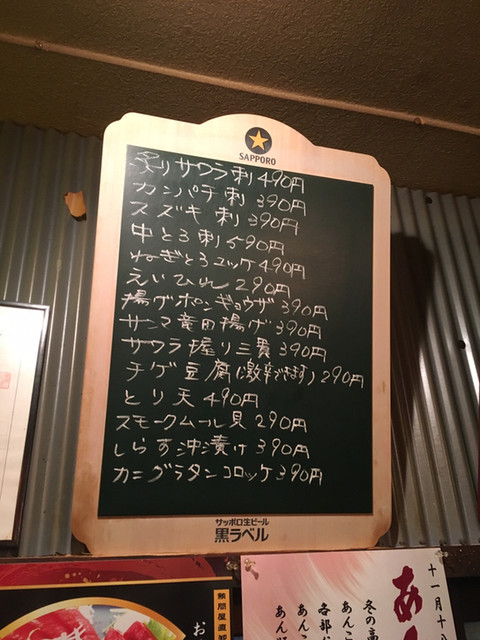 SAPPORO
炙りサワラ刺 490円
カンパチ刺 390円
スズキ刺 390円
中とろ刺 590円
ねぎとろユッケ 490円
えいひれ 290円
揚げポンギョウザ 390円
サンマ竜田揚げ 390円
サワラ握り三貫 390円
チゲ豆腐(激辛できます) 290円
とり天 490円
スモークムール貝 290円
しらす沖漬け 390円
カニグラタンコロッケ 390円
サッポロ生ビール
黒ラベル
十一月十八
あん
冬の高
あんこ
各部位
あんこ
あん肝
お